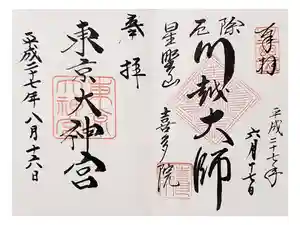 奉拝
川越大師
厄除
星野山
喜多院
平成二十七年
六月十七日
奉拝
東京大神宮
平成二十七年八月十六日